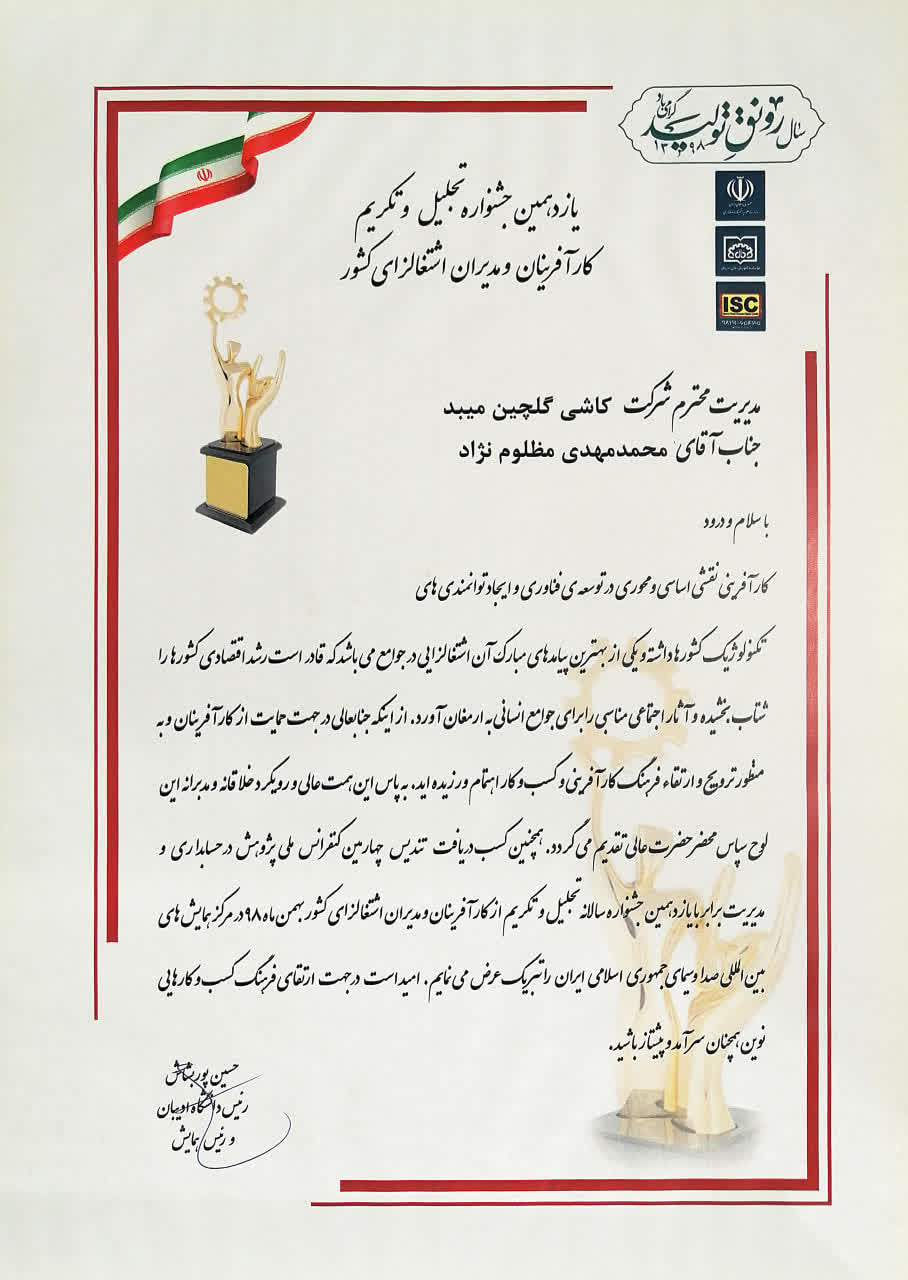 سال رونق تولید گرامی باد
۱۳۹۸
ISC
یازدهمین جشنواره تجلیل و تکریم
کارآفرینان و مدیران اشتغالزای کشور
مدیریت محترم شرکت کاشی گلچین میبد
جناب آقای محمدمهدی مظلوم نژاد
با سلام و درود
کارآفرینی نقشی اساسی و محوری در توسعه ی فناوری و ایجاد توانمندی های
تکنولوژیک کشورها داشته و یکی از بهترین پیامدهای مبارک آن اشتغالزایی در جوامع می باشد که قادر است رشد اقتصادی کشورها را
شتاب بخشیده و آثار اجتماعی مناسبی را برای جوامع انسانی به ارمغان آورد. از اینکه جنابعالی در جهت حمایت از کارآفرینان و به
منظور ترویج و ارتقاء فرهنگ کارآفرینی و کسب و کار اهتمام ورزیده اید، به پاس این همت عالی و رویکرد خلاقانه و مدبرانه این
لوح سپاس محضر حضرت عالی تقدیم می گردد. همچنین کسب دریافت تندیس چهارمین کنفرانس ملی پژوهش در حسابداری و
مدیریت برابر با یازدهمین جشنواره سالانه تجلیل و تکریم از کارآفرینان و مدیران اشتغالزای کشور بهمن ماه ۹۸ در مرکز همایش های
بین المللی صدا و سیمای جمهوری اسلامی ایران را تبریک عرض می نمایم. امید است در جهت ارتقای فرهنگ کسب و کارهایی
نوین همچنان سرآمد و پیشتاز باشید.
حسین پوربشاش
رئیس دانشگاه ادیبان
و رئیس همایش